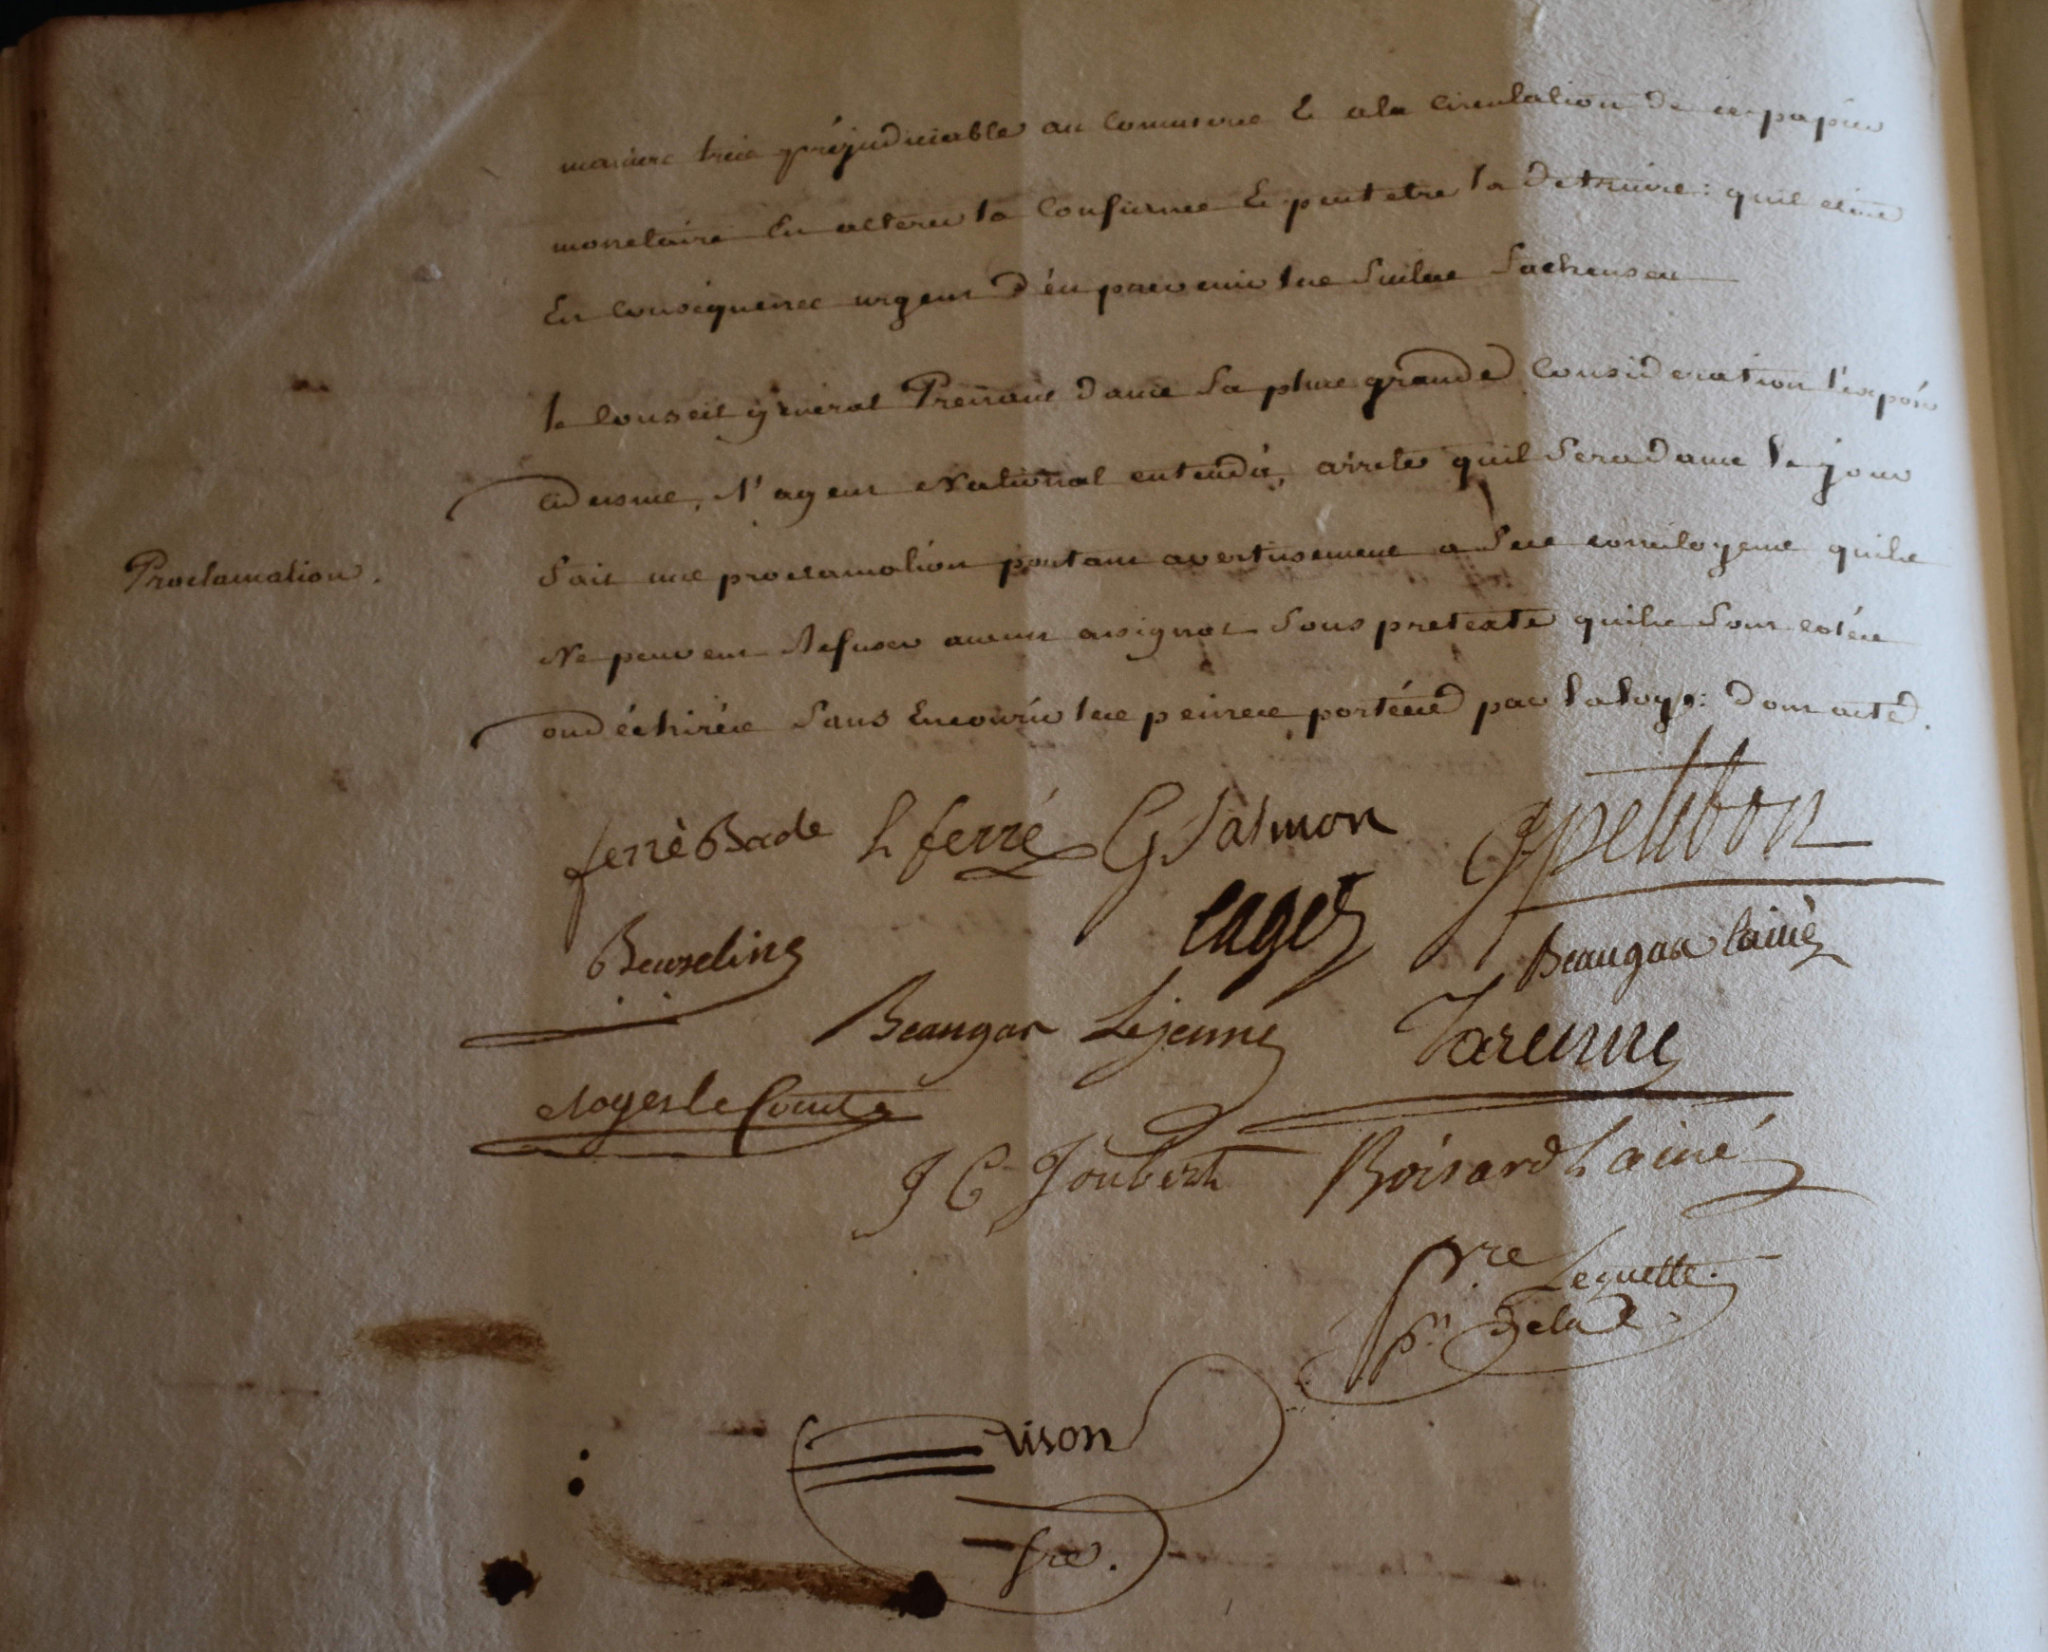 maniere tres préjudiciable au commerce & ala circulation de ce papier
monetaire En alterer la Confiance & peut etre la detruire : quil etait
En conséquence urgent d'én prevenir les Suites facheuses
le Conseil géneral Prenant dans sa plus grande Consideration l'exposé
cidessus, l'agent National entendû, arrete quil sera dans le jour
Proclamation.
fait une proclamation portant avertissement a ses concitoyens quils
Ne peuvent Refuser aucun assignat sous pretexte quils sont cotés
ou déchirés sans Encourir les peines portées par la loy : dont acte.
ferrè Bade L ferré G Salmon G petitbon
Beuzelin Lages Beaugas lainé
Beaugas Lejeune Varenne
Noyer le Comte
J C Joubert Boisard Lainé
Pre Leguette
pt dela
vison
fre.